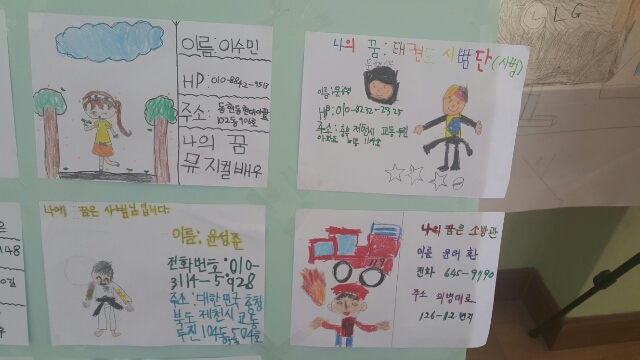 이름: 이수민
HP: 010-8842-9513
주소:
102동 904호
나의 꿈
뮤지컬배우
나의 꿈: 태권도 시범단(사범)
HP: 010-8232-2325
주소: 충북 제천시 교동
나에 꿈은 사범님 입니다.
이름: 윤성준
전화번호: 010-
3114-5928
주소: 대한민국 충청
북도 제천시 교동
무진 104동 504호
119
나의 꿈은 소방관
이름 윤여환
전화 645-9990
주소 의병대로
126-82 번지
LLG
148